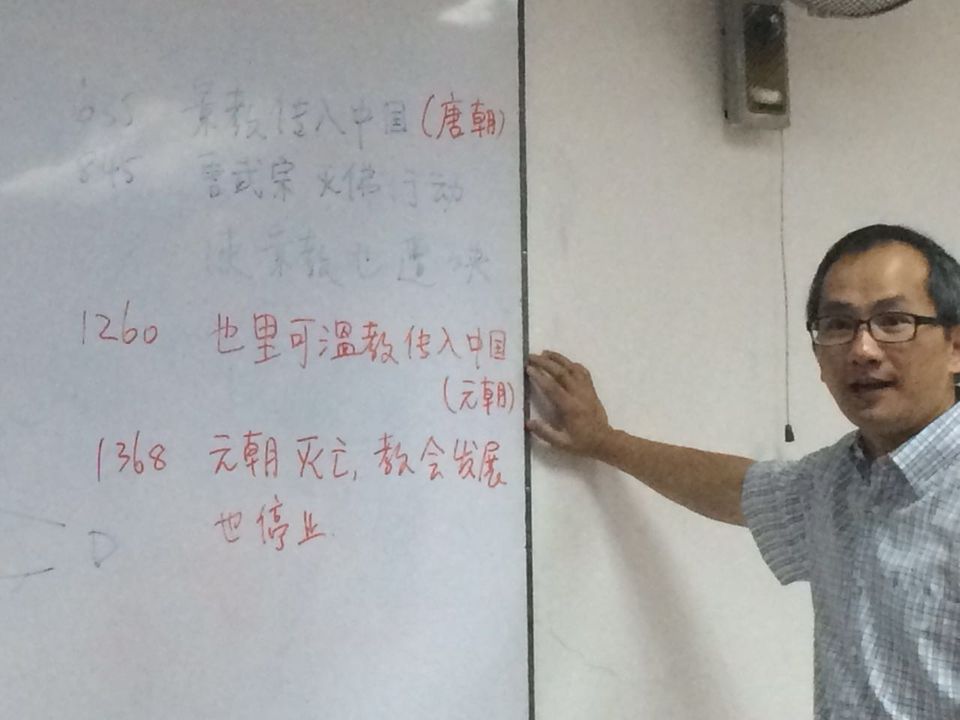 635 景教传入中国(唐朝)
845 唐武宗灭佛行动
使景教也遭
1260 也里可温教传入中国
(元朝)
1368 元朝灭亡,教会发展
也停止.
D